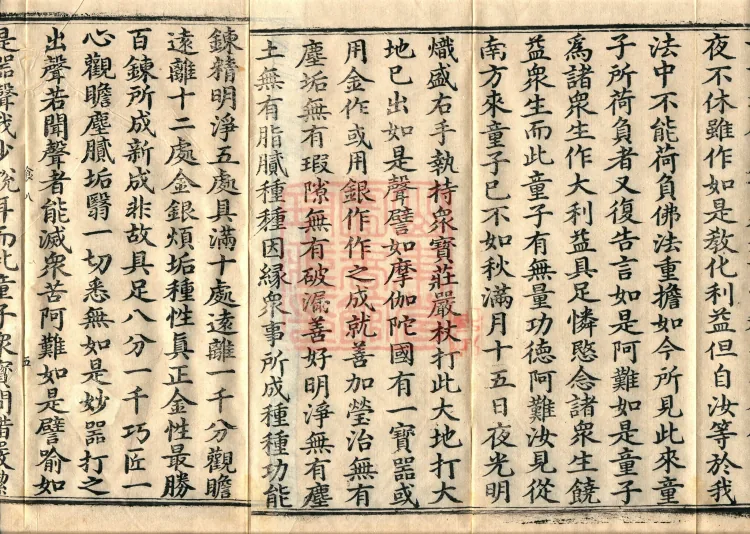 夜不休雖作如是教化利益但自汝等於我
法中不能荷負佛法重擔如今所見此來童
子所荷負者又復告言如是阿難如是童子
爲諸衆生作大利益具足憐愍念諸衆生饒
益衆生而此童子有無量功德阿難汝見從
南方來童子已不如秋滿月十五日夜光明
熾盛右手執持衆寶莊嚴杖打此大地打大
地已出如是聲譬如摩伽陀國有一寶器或
用金作或用銀作作之成就善加瑩治無有
塵垢無有瑕隙無有破漏善好明淨無有塵
土無有脂膩種種因緣衆事所成種種功能
鍊精明淨五處具滿十處遠離一千分觀瞻
遠離十二處金銀煩垢種性眞正金性最勝
百鍊所成新成非故具足八分一千巧匠一
心觀瞻塵膩垢翳一切悉無如是妙器打之
出聲若聞聲者能滅衆苦阿難如是譬喻如
食八 五
是器聲我少說耳而此童子衆寶間錯嚴